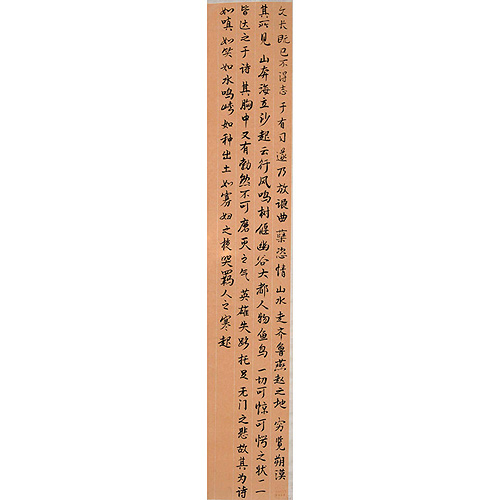 文长既已不得志于有司遂乃放浪曲蘖恣情山水走齐鲁燕赵之地穷览朔漠
其所见山奔海立沙起云行风鸣树偃幽谷大都人物鱼鸟一切可惊可愕之状一一
皆达之于诗其胸中又有勃然不可磨灭之气英雄失路托足无门之悲故其为诗
如嗔如笑如水鸣峡如种出土如寡妇之夜哭羁人之寒起